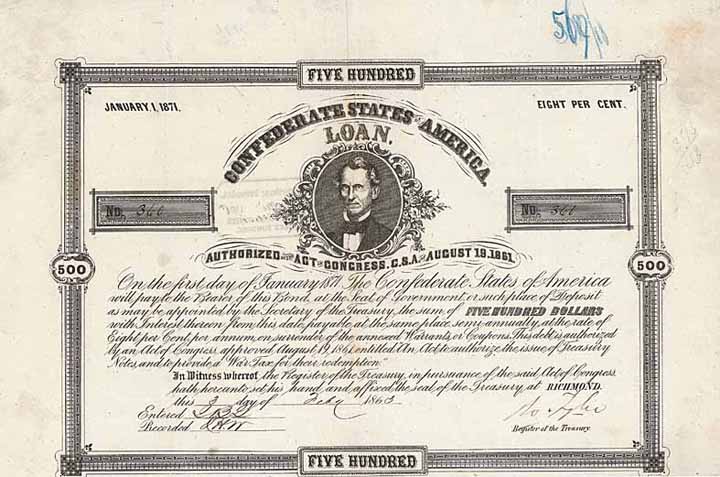 FIVE HUNDRED
JANUARY, 1, 1871.
EIGHT PER CENT.
CONFEDERATE STATES OF AMERICA.
LOAN.
No. 360
No. 360
AUTHORIZED BY ACT OF CONGRESS, C.S.A. OF AUGUST 19, 1861.
500
500
On the first day of January 1871 The Confederate States of America
will pay to the Bearer of this Bond, at the Seat of Government or such place of Deposit
as may be appointed by the Secretary of the Treasury, the sum of FIVE HUNDRED DOLLARS
with Interest thereon from this date, payable at the same place semi-annually, at the rate of
Eight per Cent per annum, on surrender of the annexed Warrants or Coupons. This debt is authorized
by an Act of Congress, approved August 19, 1861, entitled An Act to authorize the issue of Treasury
Notes, and to provide a War Tax for their redemption.
In Witness whereof, the Register of the Treasury, in pursuance of the said Act of Congress
hath hereunto set his hand, and affixed the seal of the Treasury, at RICHMOND.
this 3 day of Feby 1863
Entered
Recorded
Ro Tyler
Register of the Treasury.
FIVE HUNDRED